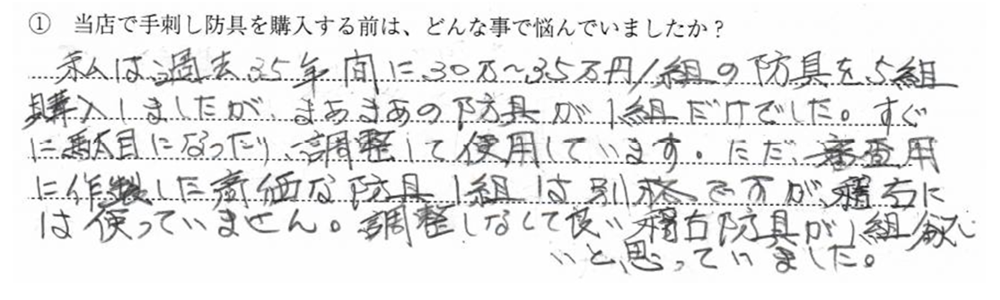 ① 当店で手刺し防具を購入する前は、どんな事で悩んでいましたか？
私は過去35年間に、30万〜35万円/組の防具を、5組
購入しましたが、まあまあの防具が1組だけでした。すぐ
に駄目になったり、調整して使用しています。ただ、審査用
に作製した高価な防具1組は別格ですが、稽古に
は使っていません。調整しなくて良い稽古防具が1組欲し
いと思っていました。